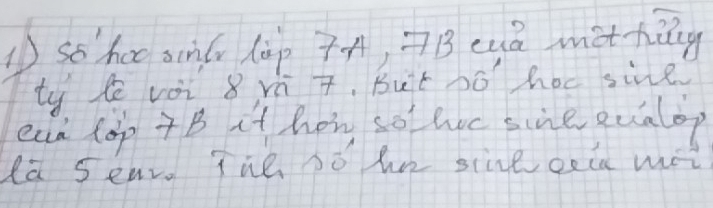 1) Số học sinh lớp 7A, 7B của một trường
tỷ lệ với 8 và 7. Biết số học sinh
của lớp 7B ít hơn số học sinh của lớp
là 5 em. Tính số học sinh của mỗi